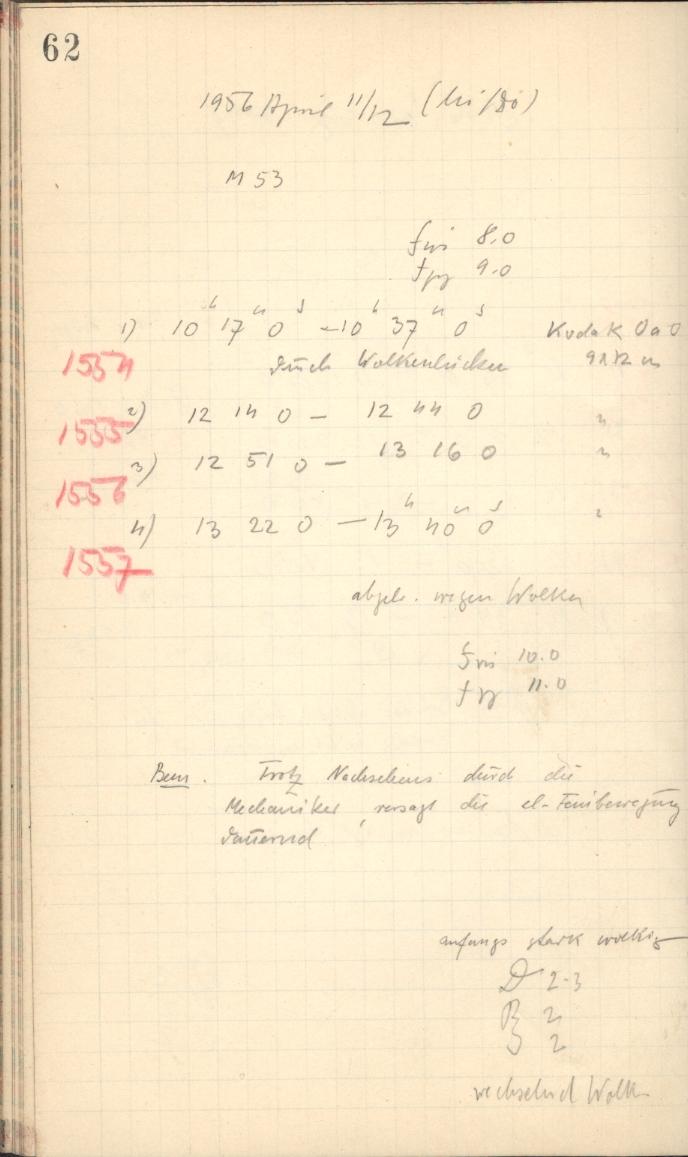 62
1956 April 11/12 (Mi/Do)
M 53
f vis 8.0
f pg 9.0
1) 10h 17m 0s – 10h 37m 0s Kodak OaO
1554 durch Wolkenlücken 9x12 cm
2) 12 14 0 – 12 44 0 "
1555
3) 12 51 0 – 13 16 0 "
1556
4) 13 22 0 – 13h 40m 0s "
1557
abgebr. wegen Wolken
f vis 10.0
f pg 11.0
Bem. Trotz Nachsehens durch die
Mechaniker, versagt die el-Feinbewegung
dauernd
anfangs stark wolkig
D 2-3
B 2
S 2
wechselnd Wolk.